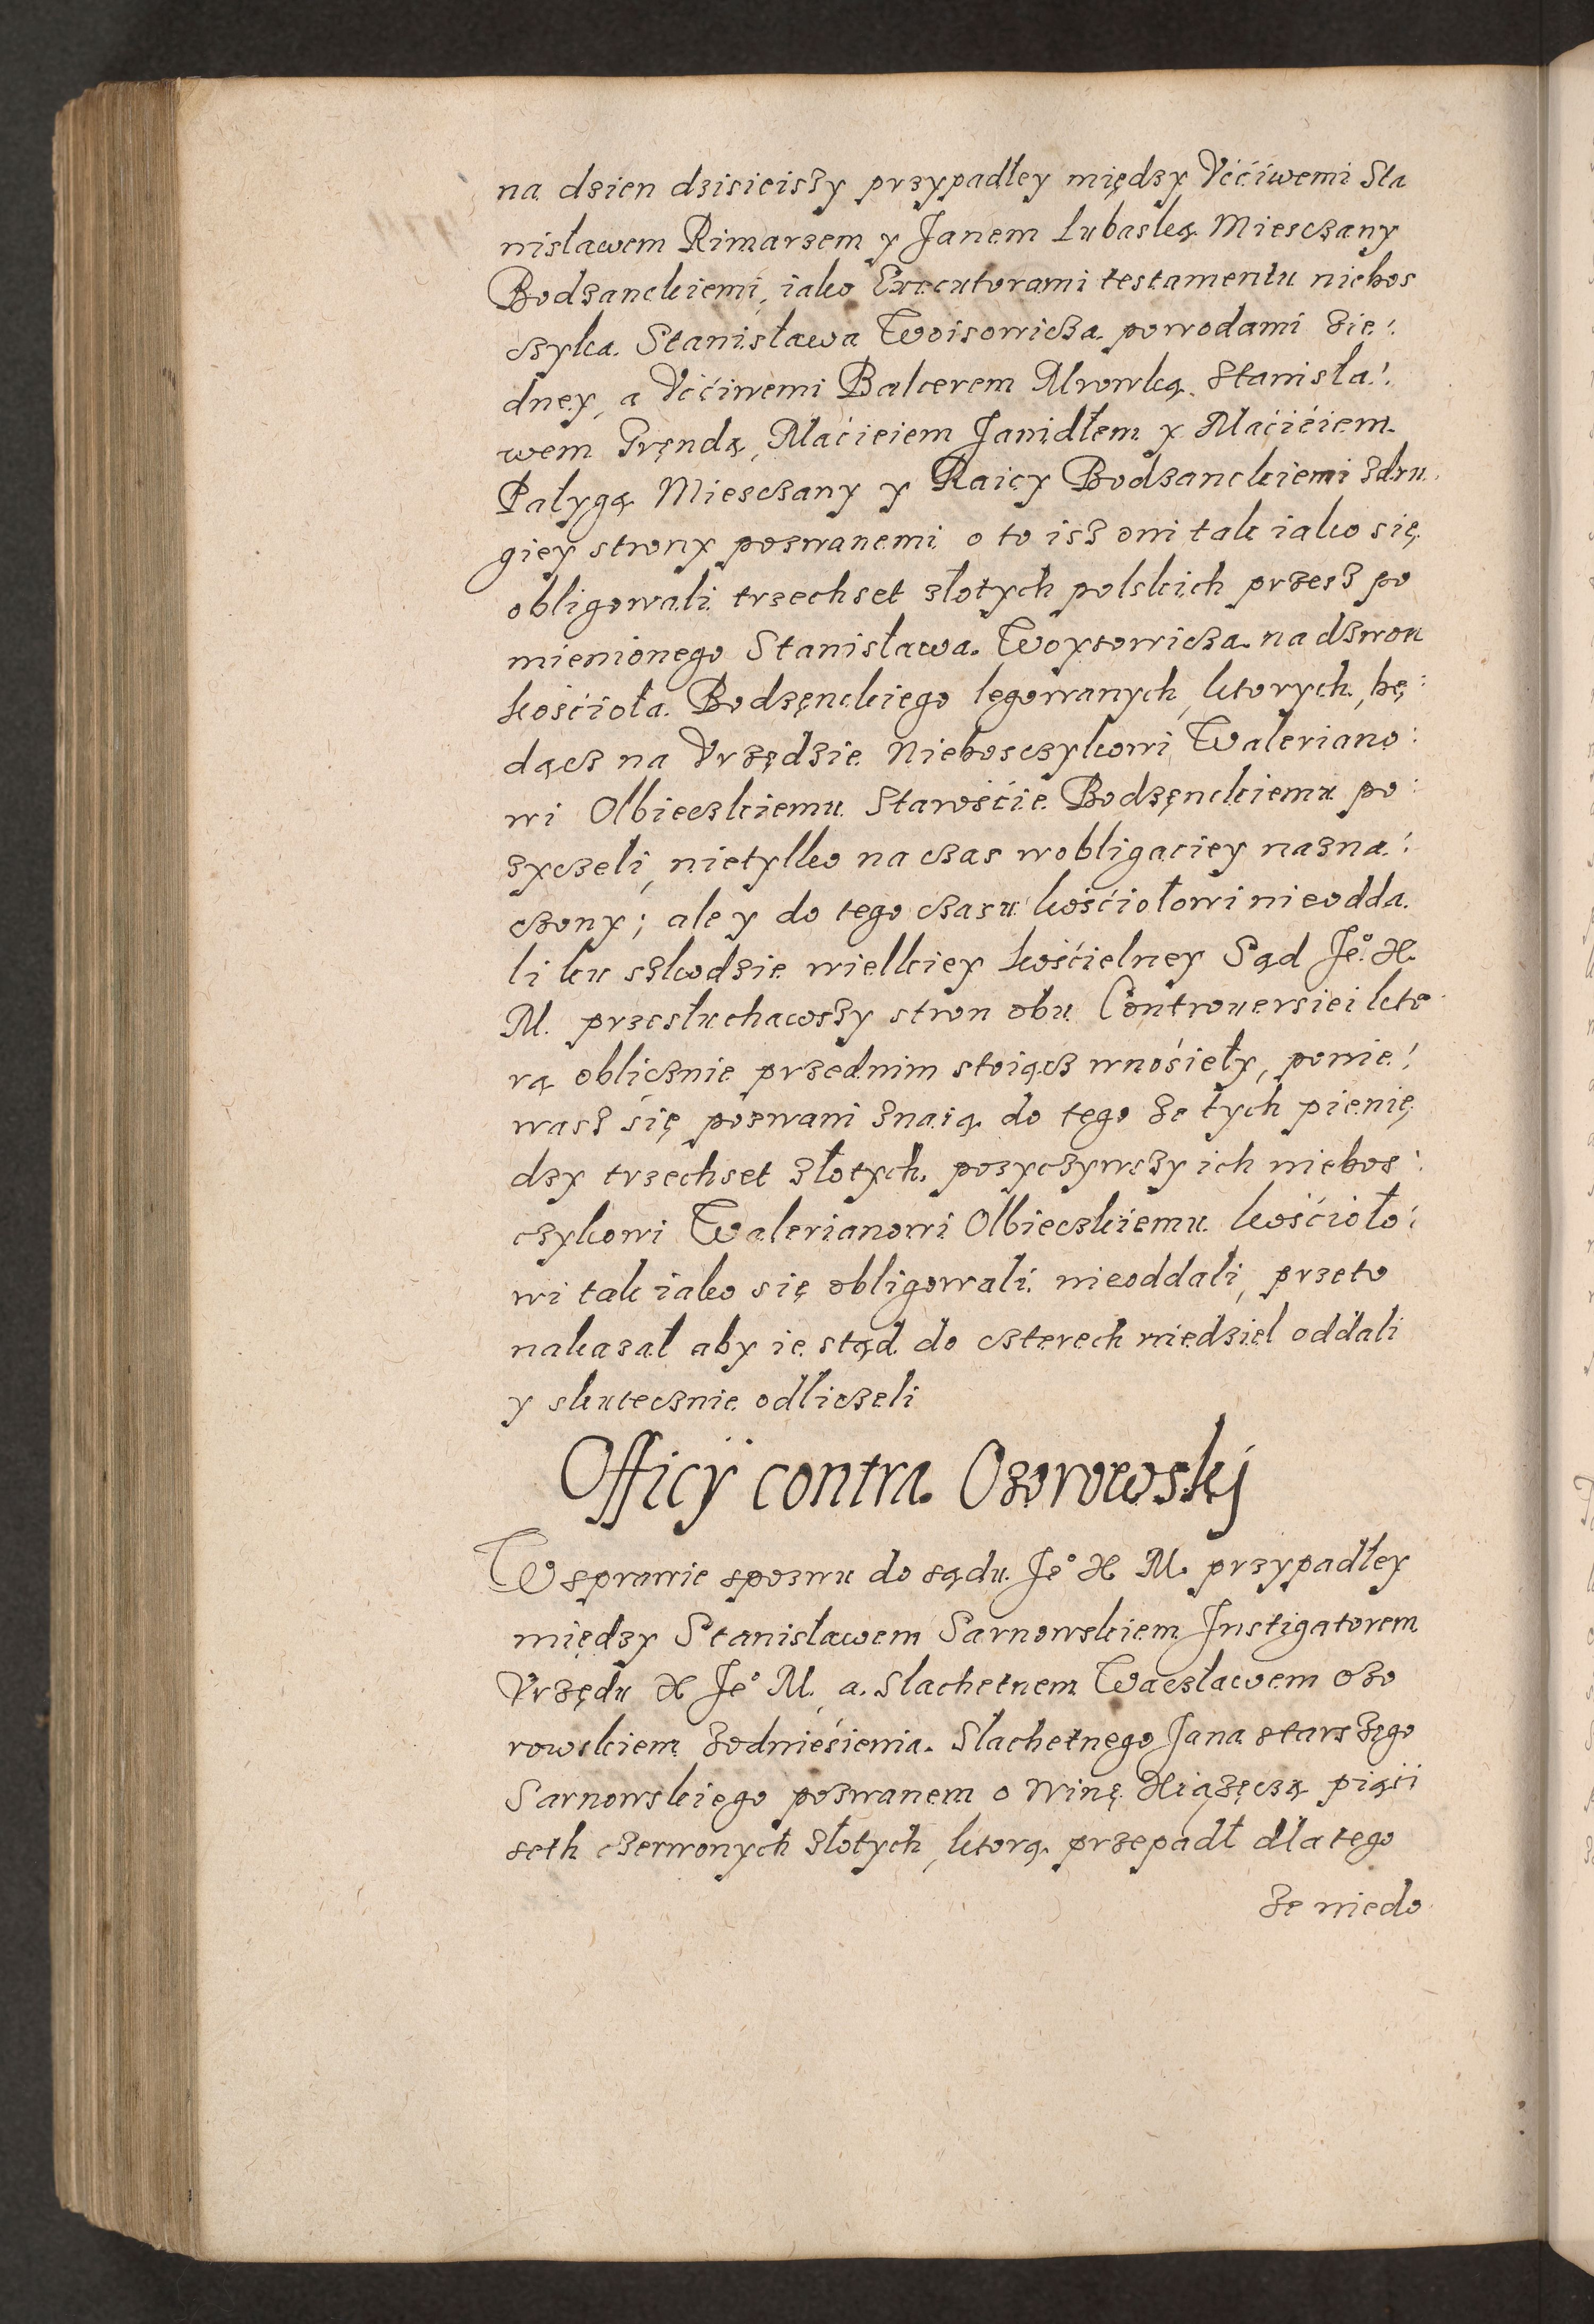 na dzien dzisieiszy przypadłey między Vććiwemi Sta
nisławem Rimarzem y Janem Lubaską Miesczany
Bodzanckiemi, iako Executorami testamentu niebos
czyka Stanisława Woisowicza powodami zie:
dney, a Vććiwemi Balcerem Mrowką Stanisła:
wem Grendą, Maćieiem Janidłem y Maćiéiem
Pałygą Miesczany y Raicy Bodzanckiemi zdru
giey strony pozwanemi o to isz oni tak iako się
obligowali trzechset złotych polskich przesz po
mienionego Stanisława Woysowicza na dzwon
kośćioła Bodzęnckiego legowanych, ktorych, bę:
dącz na Vrzędzie Nieboszczykowi Waleriano:
wi Olbieczkiemu Starośćie Bodzęnckiemu po:
zyczeli, nietylko na czas wobligaciey nazna:
czony; ale y do tego czasu kośćiołowi nieodda
li ku szkodzie wielkiey kośćielney Sąd Jeº X.
M. przesłuchawszy stron obu Controuersiei kto
rą oblicznie przednim stoiącz wnośieły, ponie:
wasz się pozwani znaią do tego ze tych pienię
dzy trzechset złotych pozyczywszy ich niebos:
czykowi Walerianowi Olbieczkiemu kośćioło:
wi tak iako się obligowali nieoddali, przeto
nakazał aby ie stąd do czterech niedziel oddali
y skutecznie odliczeli
Officÿ contra Ozorowskj
W sprawie spozwu do sądu Jeº X M. przypadłey
między Stanisławem Sarnowskiem Instigatorem
Vrzędu X Jeº M. a Slachetnem Wacsławem Ozo
rowskiem zodnieśienia Slachetnego Jana starszego
Sarnowskiego pozwanem o Winę Xiązęczą piąći
seth czerwonych złotych, ktorą przepadł dla tego
ze niedo